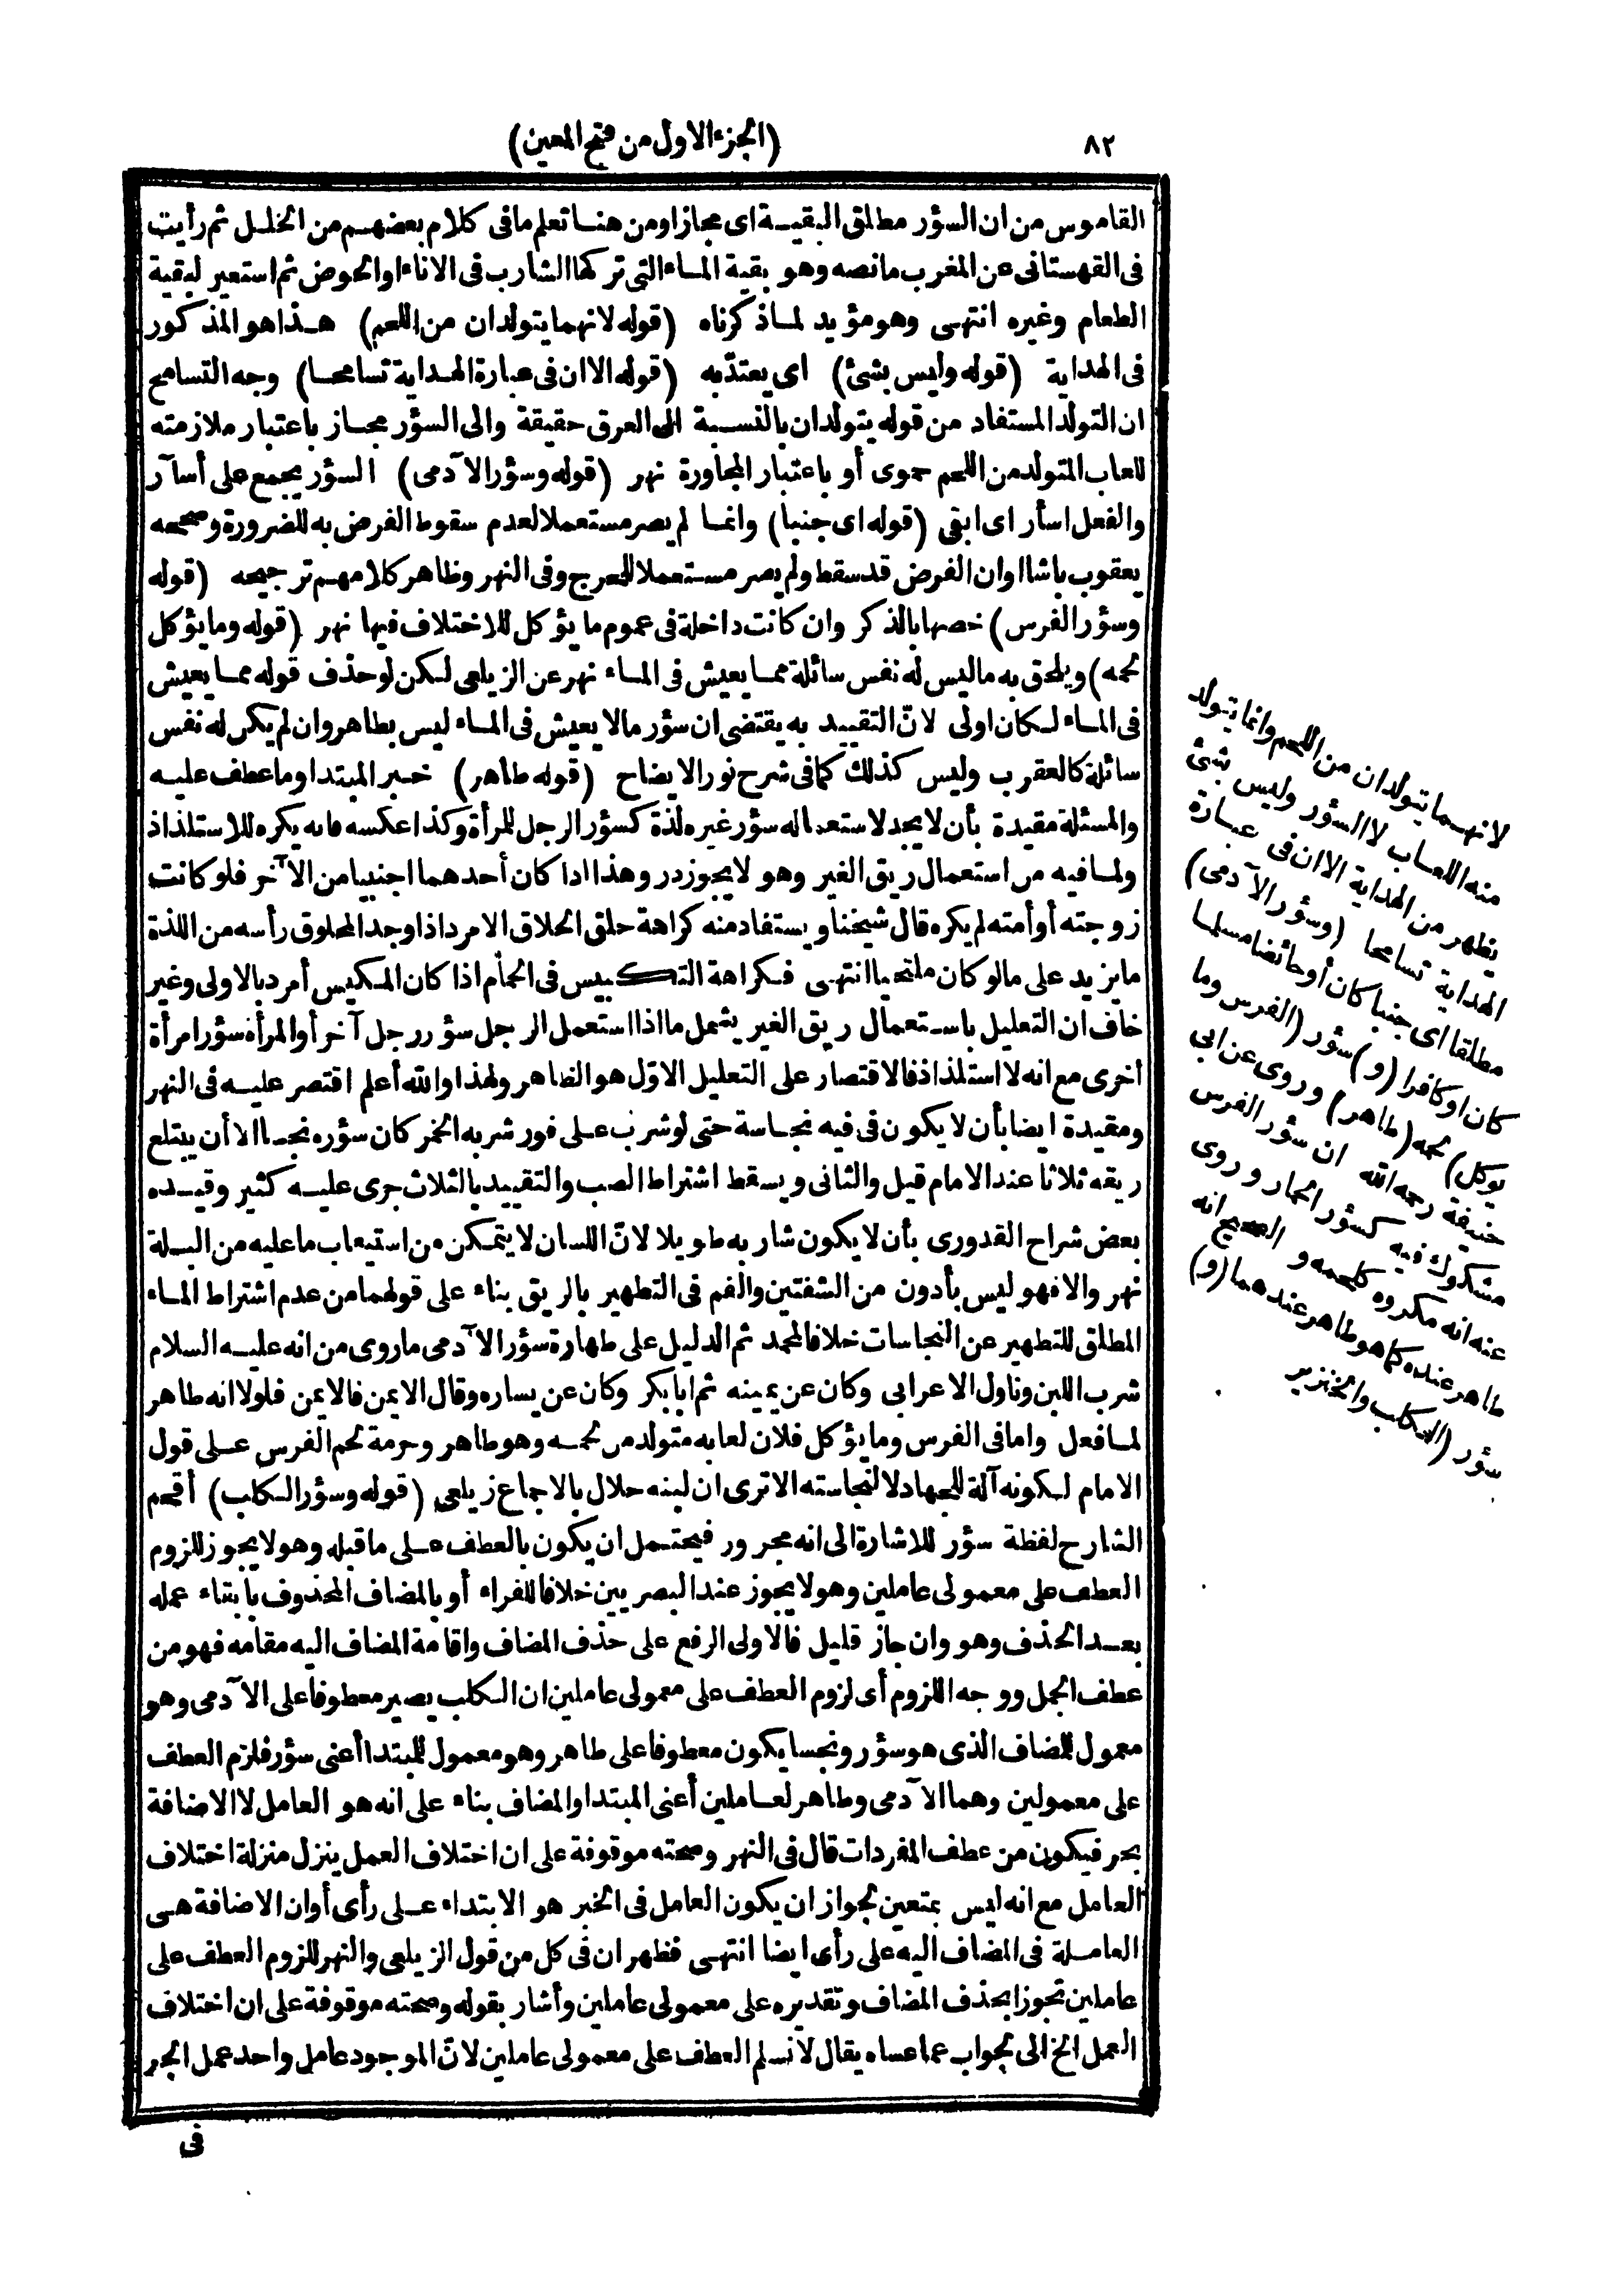 ٨٢
(الجزء الاول من فتح المعين)
القاموس من ان السؤر مطلق البقية اى مجازا ومن هنا تعلم ما فى كلام بعضهم من الخلل ثم رأيت
فى القهستانى عن المغرب ما نصه وهو بقية الماء التى تركها الشارب فى الاناء او الحوض ثم استعير لبقية
الطعام وغيره انتهى وهو مؤيد لما ذكرناه (قوله لانهما يتولدان من اللحم) هذا هو المذكور
فى الهداية (قوله وليس بشئ) اى يعتدّ به (قوله الا ان فى عبارة الهداية تسامحا) وجه التسامح
ان التولد المستفاد من قوله يتولدان بالنسبة الى العرق حقيقة والى السؤر مجاز باعتبار ملازمته
للعاب المتولد من اللحم حموى أو باعتبار المجاورة نهر (قوله وسؤر الآدمى) السؤر يجمع على أسآر
والفعل اسأر اى ابقى (قوله اى جنبا) وانما لم يصر مستعملا لعدم سقوط الفرض به للضرورة وصححه
يعقوب باشا اوان الفرض قد سقط ولم يصر مستعملا للحرج وفى النهر وظاهر كلامهم ترجيحه (قوله
وسؤر الفرس) خصها بالذكر وان كانت داخلة فى عموم ما يؤكل للاختلاف فيها نهر (قوله وما يؤكل
لحمه) ويلحق به ما ليس له نفس سائلة مما يعيش فى الماء نهر عن الزيلعى لكن لو حذف قوله مما يعيش
فى الماء لكان اولى لانّ التقييد به يقتضى ان سؤر ما لا يعيش فى الماء ليس بطاهر وان لم يكن له نفس
سائلة كالعقرب وليس كذلك كما فى شرح نور الايضاح (قوله طاهر) خبر المبتدا وما عطف عليه
والمسئلة مقيدة بأن لا يجد لاستعماله سؤر غيره لذة كسؤر الرجل للمرأة وكذا عكسه فانه يكره للاستلذاذ
ولما فيه من استعمال ريق الغير وهو لا يجوز در وهذا اذا كان أحدهما اجنبيا من الآخر فلو كانت
زوجته أو أمته لم يكره قال شيخنا ويستفاد منه كراهة حلق الحلاق الامرد اذا وجد المحلوق رأسه من اللذة
ما يزيد على ما لو كان ملتحيا انتهى فكراهة التكبيس فى الحمام اذا كان المكبس أمرد بالاولى وغير
خاف ان التعليل باستعمال ريق الغير يشمل ما اذا استعمل الرجل سؤر رجل آخر أو المرأة سؤر امرأة
أخرى مع انه لا استلذاذ فالاقتصار على التعليل الاوّل هو الظاهر ولهذا والله أعلم اقتصر عليه فى النهر
ومقيدة ايضا بأن لا يكون فى فيه نجاسة حتى لو شرب على فور شربه الخمر كان سؤره نجسا الا أن يبتلع
ريقه ثلاثا عند الامام قيل والثانى ويسقط اشتراط الصب والتقييد بالثلاث جرى عليه كثير وقيده
بعض شراح القدورى بأن لا يكون شاربه طويلا لانّ اللسان لا يتمكن من استيعاب ما عليه من البلة
نهر والا فهو ليس بأدون من الشفتين والفم فى التطهير بالريق بناء على قولهما من عدم اشتراط الماء
المطلق للتطهير عن النجاسات خلافا لمحمد ثم الدليل على طهارة سؤر الآدمى ما روى من انه عليه السلام
شرب اللبن وناول الاعرابى وكان عن يمينه ثم ابا بكر وكان عن يساره وقال الايمن فالايمن فلولا انه طاهر
لما فعل واما فى الفرس وما يؤكل فلان لعابه متولد من لحمه وهو طاهر وحرمة لحم الفرس على قول
الامام لكونه آلة للجهاد لا لنجاسته الا ترى ان لبنه حلال بالاجماع زيلعى (قوله وسؤر الكلب) أقحم
الشارح لفظة سؤر للاشارة الى انه مجرور فيحتمل ان يكون بالعطف على ما قبله وهو لا يجوز للزوم
العطف على معمولى عاملين وهو لا يجوز عند البصريين خلافا للفراء أو بالمضاف المحذوف بابقاء عمله
بعد الحذف وهو وان جاز قليل فالاولى الرفع على حذف المضاف واقامة المضاف اليه مقامه فهو من
عطف الجمل ووجه اللزوم أى لزوم العطف على معمولى عاملين ان الكلب يصير معطوفا على الآدمى وهو
معمول للمضاف الذى هو سؤر ونجسا يكون معطوفا على طاهر وهو معمول للمبتدا أعنى سؤر فلزم العطف
على معمولين وهما الآدمى وطاهر لعاملين أعنى المبتدا والمضاف بناء على انه هو العامل لا الاضافة
بحر فيكون من عطف المفردات قال فى النهر وصحته موقوفة على ان اختلاف العمل ينزل منزلة اختلاف
العامل مع انه ليس بمتعين لجواز ان يكون العامل فى الخبر هو الابتداء على رأى أو ان الاضافة هى
العاملة فى المضاف اليه على رأى ايضا انتهى فظهر ان فى كل من قول الزيلعى والنهر للزوم العطف على
عاملين تجوزا بحذف المضاف وتقديره على معمولى عاملين وأشار بقوله وصحته موقوفة على ان اختلاف
العمل الخ الى لجواب عما عساه يقال لا نسلم العطف على معمولى عاملين لانّ الموجود عامل واحد عمل الجر
فى
لانهما يتولدان من اللحم وانما يتولد
منه اللعاب لا السؤر وليس بشئ
يظهر من الهداية الا ان فى عبارة
الهداية تسامحا (وسؤر الآدمى)
مطلقا اى جنبا كان أو حائضا مسلما
كان او كافرا (و) سؤر (الفرس وما
يوكل) لحمه (طاهر) وروى عن ابى
حنيفة رحمه الله ان سؤر الفرس
مشكوك فيه كسؤر الحمار وروى
عنه انه مكروه كلحمه و الصحيح انه
طاهر عنده كما هو طاهر عندهما (و)
سؤر (الكلب والخنزير